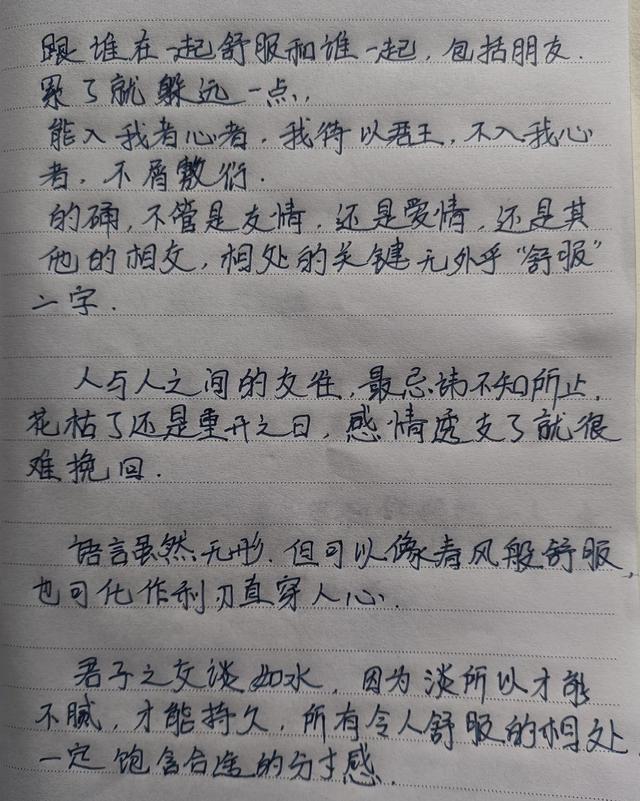 跟谁在一起舒服和谁一起，包括朋友.
累了就躲远一点，
能入我者心者，我待以君王，不入我心
者，不屑敷衍.
的确，不管是友情，还是爱情，还是其
他的相交，相处的关键无外乎“舒服”
二字.
人与人之间的交往，最忌讳不知所止，
花枯了还是重开之日，感情透支了就很
难挽回.
语言虽然无形，但可以像春风般舒服，
也可化作利刃直穿人心.
君子之交谈如水，因为淡所以才能
不腻，才能持久，所有令人舒服的相处
一定饱含合适的分寸感.